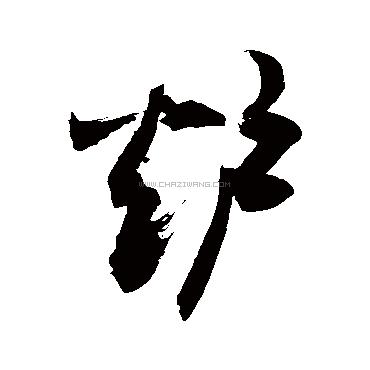 炉
WWW.CHAZIWANG.COM